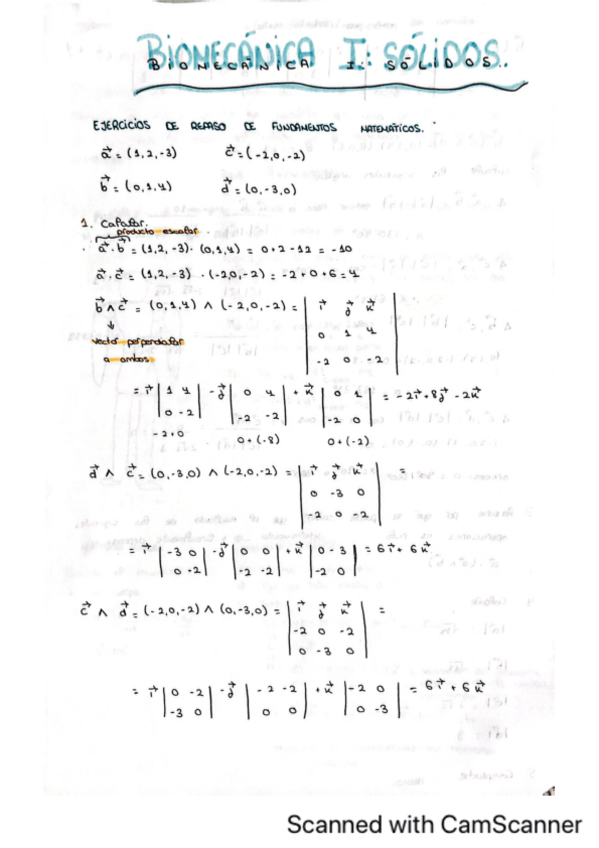 BIOMECÁNICA I: SÓLIDOS.
EJERCICIOS DE REPASO DE FUNDAMENTOS MATEMÁTICOS.
a⃗ = (1,2,-3) c⃗ = (-2,0,-2)
b⃗ = (0,1,4) d⃗ = (0,-3,0)
1. Calcular.
producto escalar.
· a⃗·b⃗ = (1,2,-3)·(0,1,4) = 0+2-12 = -10
a⃗·c⃗ = (1,2,-3)·(-2,0,-2) = -2+0+6 = 4
b⃗ ∧ c⃗ = (0,1,4) ∧ (-2,0,-2) = | i⃗ j⃗ k⃗ |
↓ | 0 1 4 |
vector perpendicular
a ambos | -2 0 -2 |
= i⃗ | 1 4 | -j⃗ | 0 4 | + k⃗ | 0 1 | = -2i⃗+8j⃗-2k⃗
| 0 -2 | | -2 -2 | | -2 0 |
-2+0 0+(-8) 0+(-2)
d⃗ ∧ c⃗ = (0,-3,0) ∧ (-2,0,-2) = | i⃗ j⃗ k⃗ | =
| 0 -3 0 |
| -2 0 -2 |
= i⃗ | -3 0 | -j⃗ | 0 0 | +k⃗ | 0 -3 | = 6i⃗+6k⃗
| 0 -2 | | -2 -2 | | -2 0 |
c⃗ ∧ d⃗ = (-2,0,-2) ∧ (0,-3,0) = | i⃗ j⃗ k⃗ | =
| -2 0 -2 |
| 0 -3 0 |
= i⃗ | 0 -2 | -j⃗ | -2 -2 | +k⃗ | -2 0 | = 6i⃗+6k⃗
| -3 0 | | 0 0 | | 0 -3 |
Scanned with CamScanner